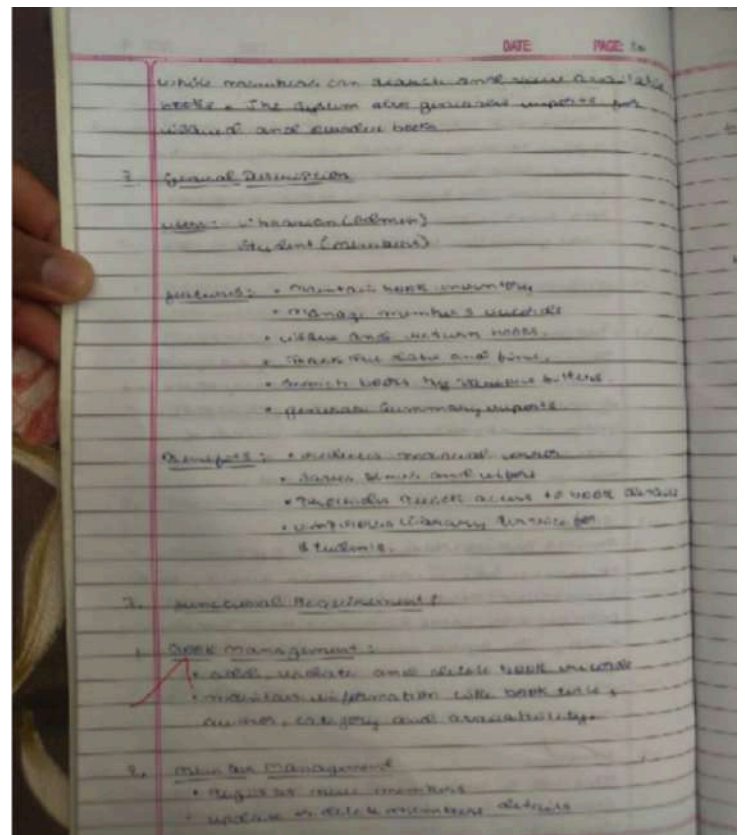 DATE PAGE:
while members can search and view available
books. The system also generates reports for
issued and overdue books
2. General Description
users: Librarian (admin)
Student (members)
features: • maintain book inventory
• manage members records
• issue and return books.
• Track due date and fine.
• Search books by various filters.
• generate summary reports.
Benefits: • reduces manual work
• saves time and effort
• Provides quick access to book details
• improves library service for
students.
3. functional Requirement:
1. Book management:
• add, update and delete book records
• maintain information like book title,
author, category and availability.
2. member management
• register new members
• update or delete members details